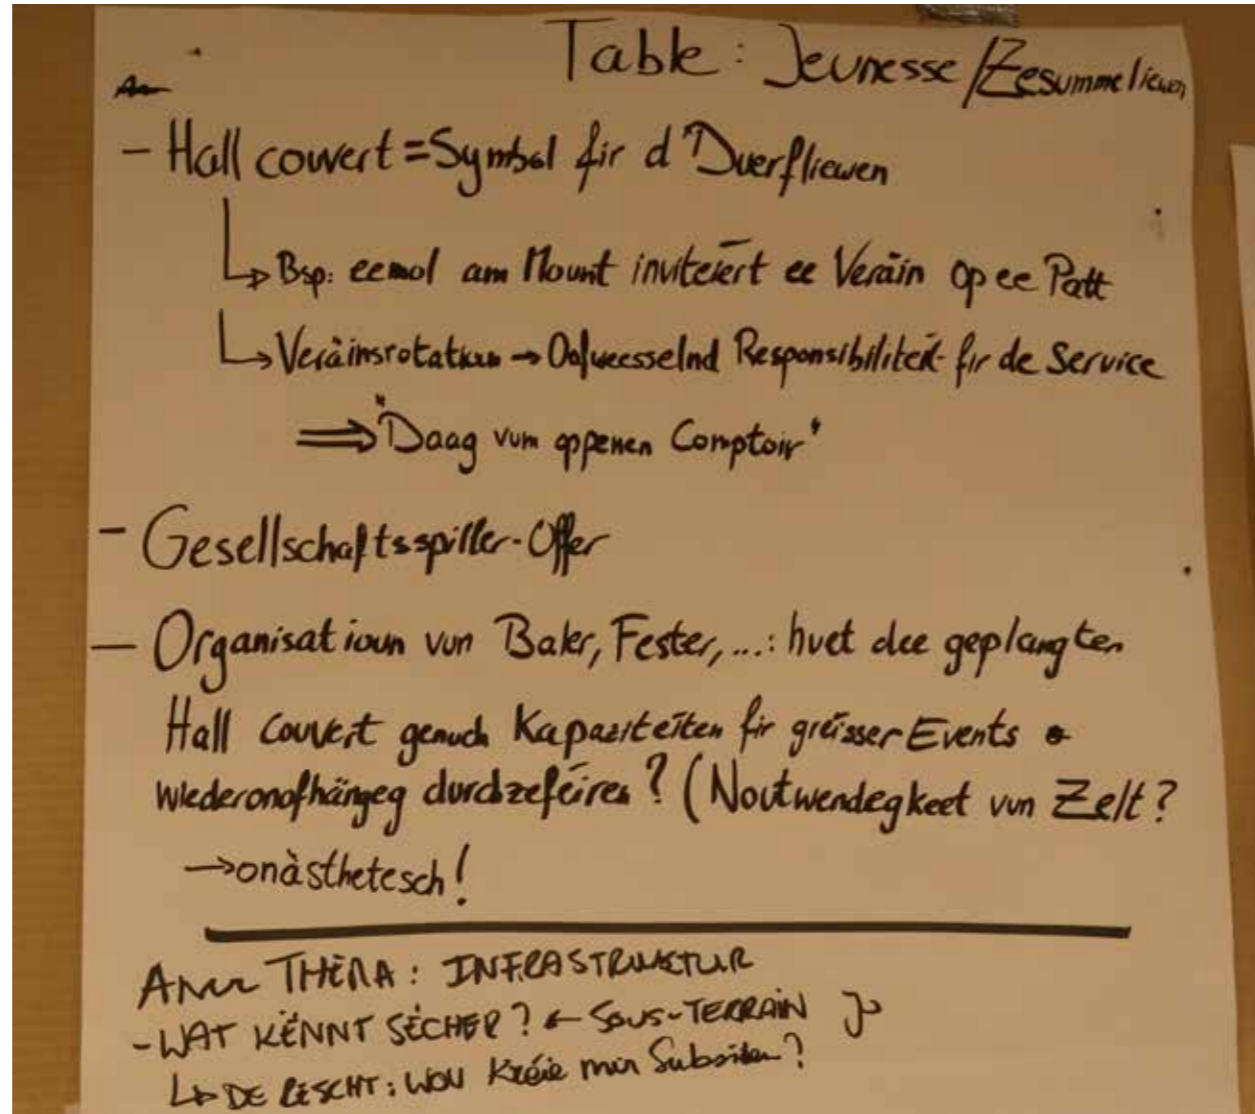 Table: Jeunesse/Zesummeliewen
- Hall couvert = Symbol fir d'Duerfliewen
↳ Bsp: eemol am Mount invitéiert ee Veräin op ee Patt
↳ Veräinsrotatioun → Oofwesselnd Responsibilitéit fir de Service
⟹ "Daag vum oppenen Comptoir"
- Gesellschaftsspiller-Offer
- Organisatioun vun Baler, Fester,...: huet dee geplangten
Hall couvert genuch Kapazitéiten fir gréisser Events
wiederonofhängeg durchzeféiren? (Noutwendegkeet vun Zelt?
→ onästhetesch!
THEMA: INFRASTRUKTUR
- WAT KËNNT SËCHER? ← SOUS-TERRAIN Jo
↳ DE RESCHT: WOU Kréie mir Subsiden?